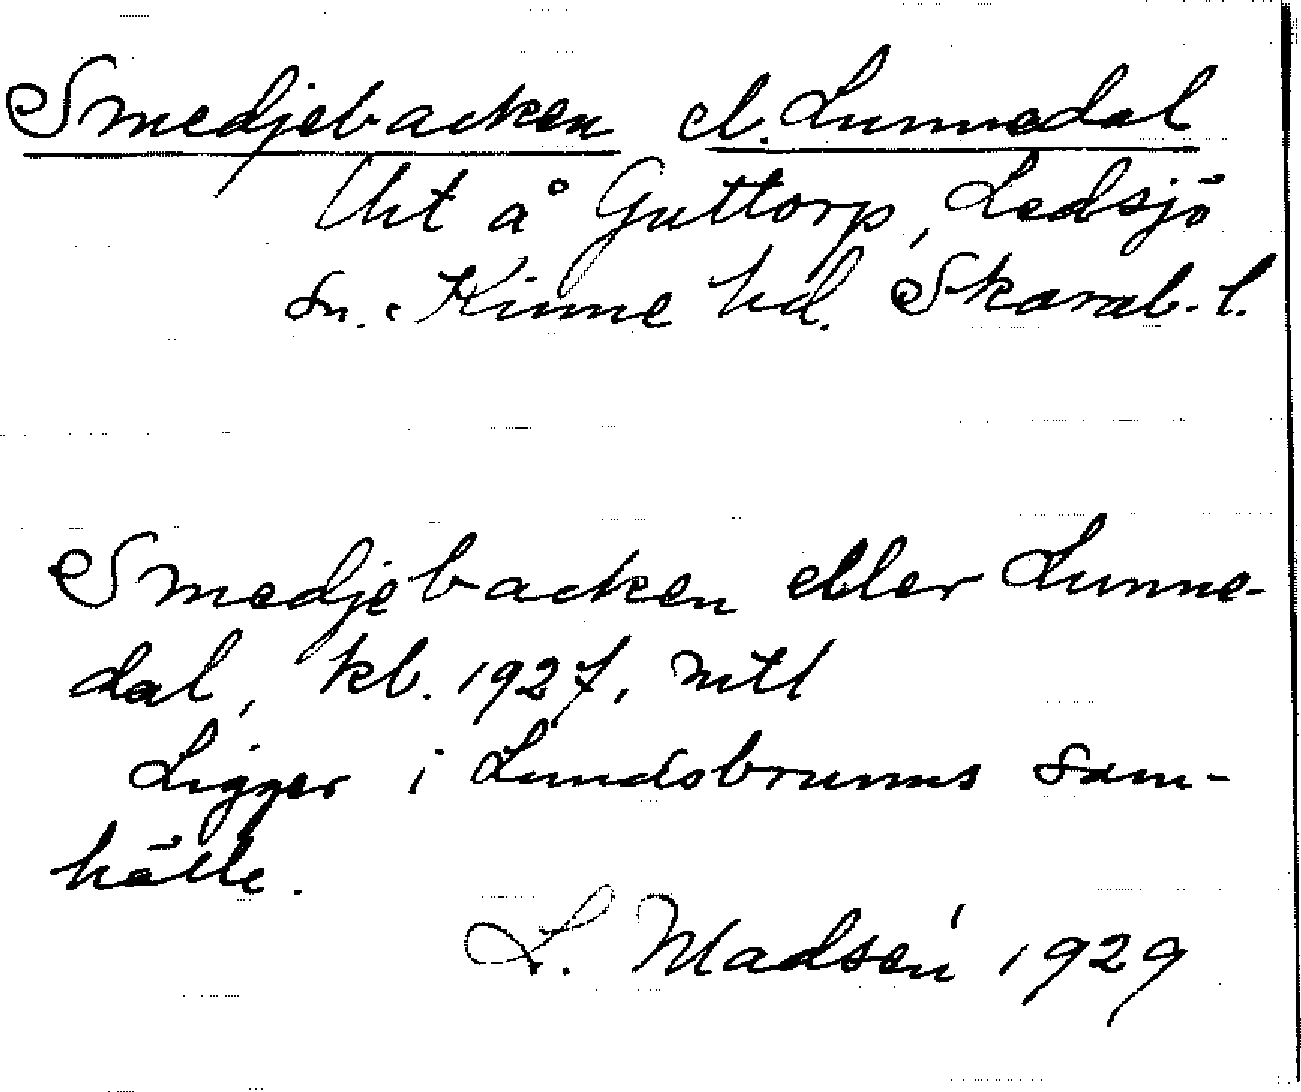 Smedjebacken el. Lunnedal
Lht å Guttorp, Ledsjö
sn. Kinne hd. Skarab. l.
Smedjebacken eller Lunne-
dal, kb. 1927, mtl
Ligger i Lundsbrunns sam-
hälle.
L. Madsén 1929